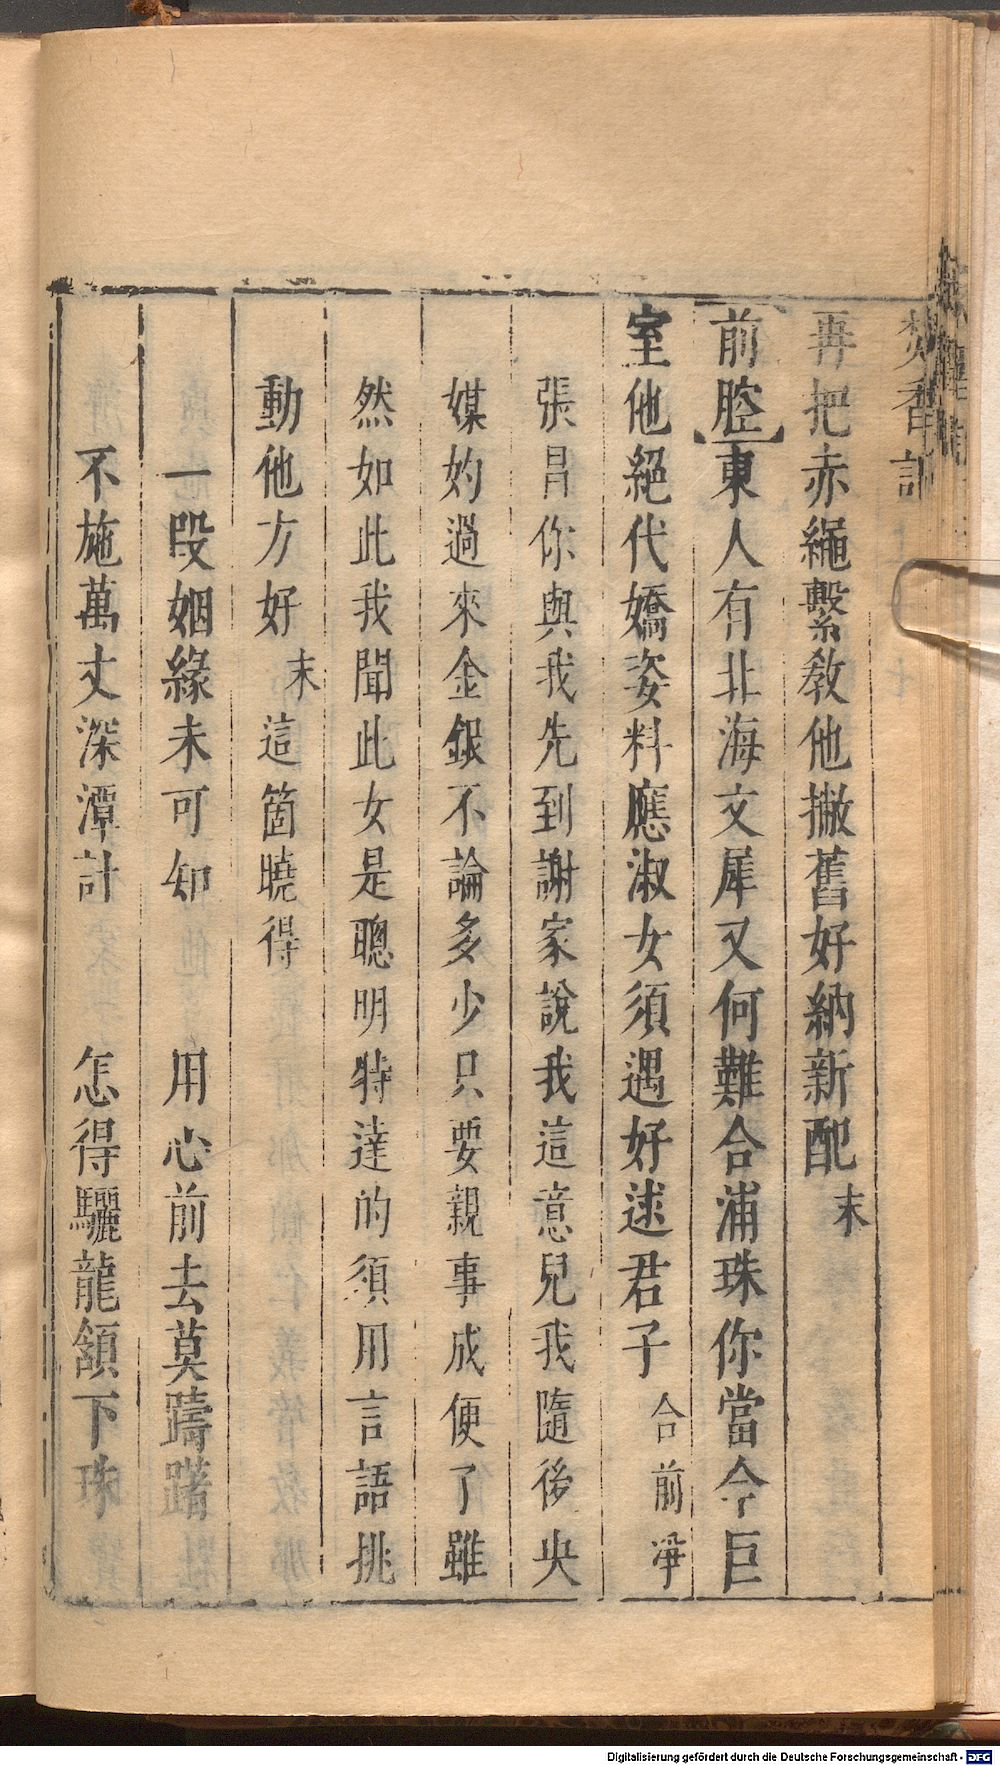 焚香記
再把赤繩繫教他撇舊好納新配末
前腔東人有北海文犀又何難合浦珠你當今巨
室他絕代嬌姿料應淑女須遇好逑君子合前淨
張昌你與我先到謝家說我這意兒我隨後央
媒妁過來金銀不論多少只要親事成便了雖
然如此我聞此女是聰明特達的須用言語挑
動他方好末這箇曉得
一段姻緣未可知 用心前去莫躊躇
不施萬丈深潭計 怎得驪龍頷下珠
Digitalisierung gefördert durch die Deutsche Forschungsgemeinschaft - DFG